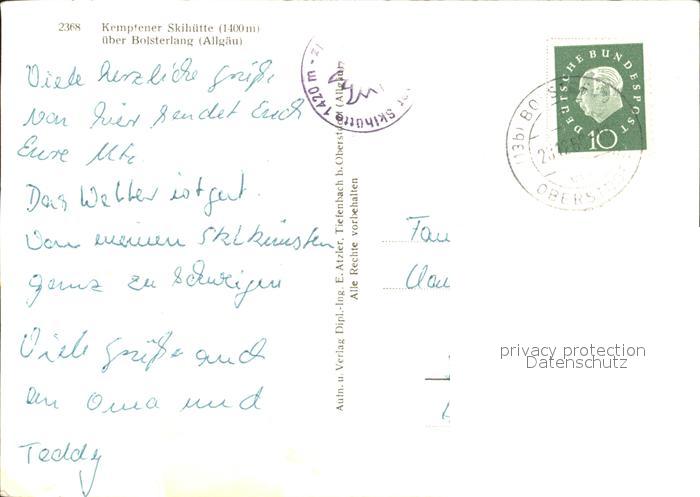 2368 Kemptener Skihütte (1400m)
über Bolsterlang (Allgäu)
Viele herzliche Grüße
von hier sendet Euch
Eure Ute.
Das Wetter ist gut.
Von meinen Skikünsten
ganz zu schweigen
Viele Grüße auch
an Oma und
Teddy
Skihütte 1420 m
Aufn. u. Verlag Dipl.-Ing. E. Atzler, Tiefenbach b. Oberstdorf (Allgäu)
Alle Rechte vorbehalten
DEUTSCHE BUNDESPOST
10
(13b) BO
OBERST
Fam
privacy protection
Datenschutz